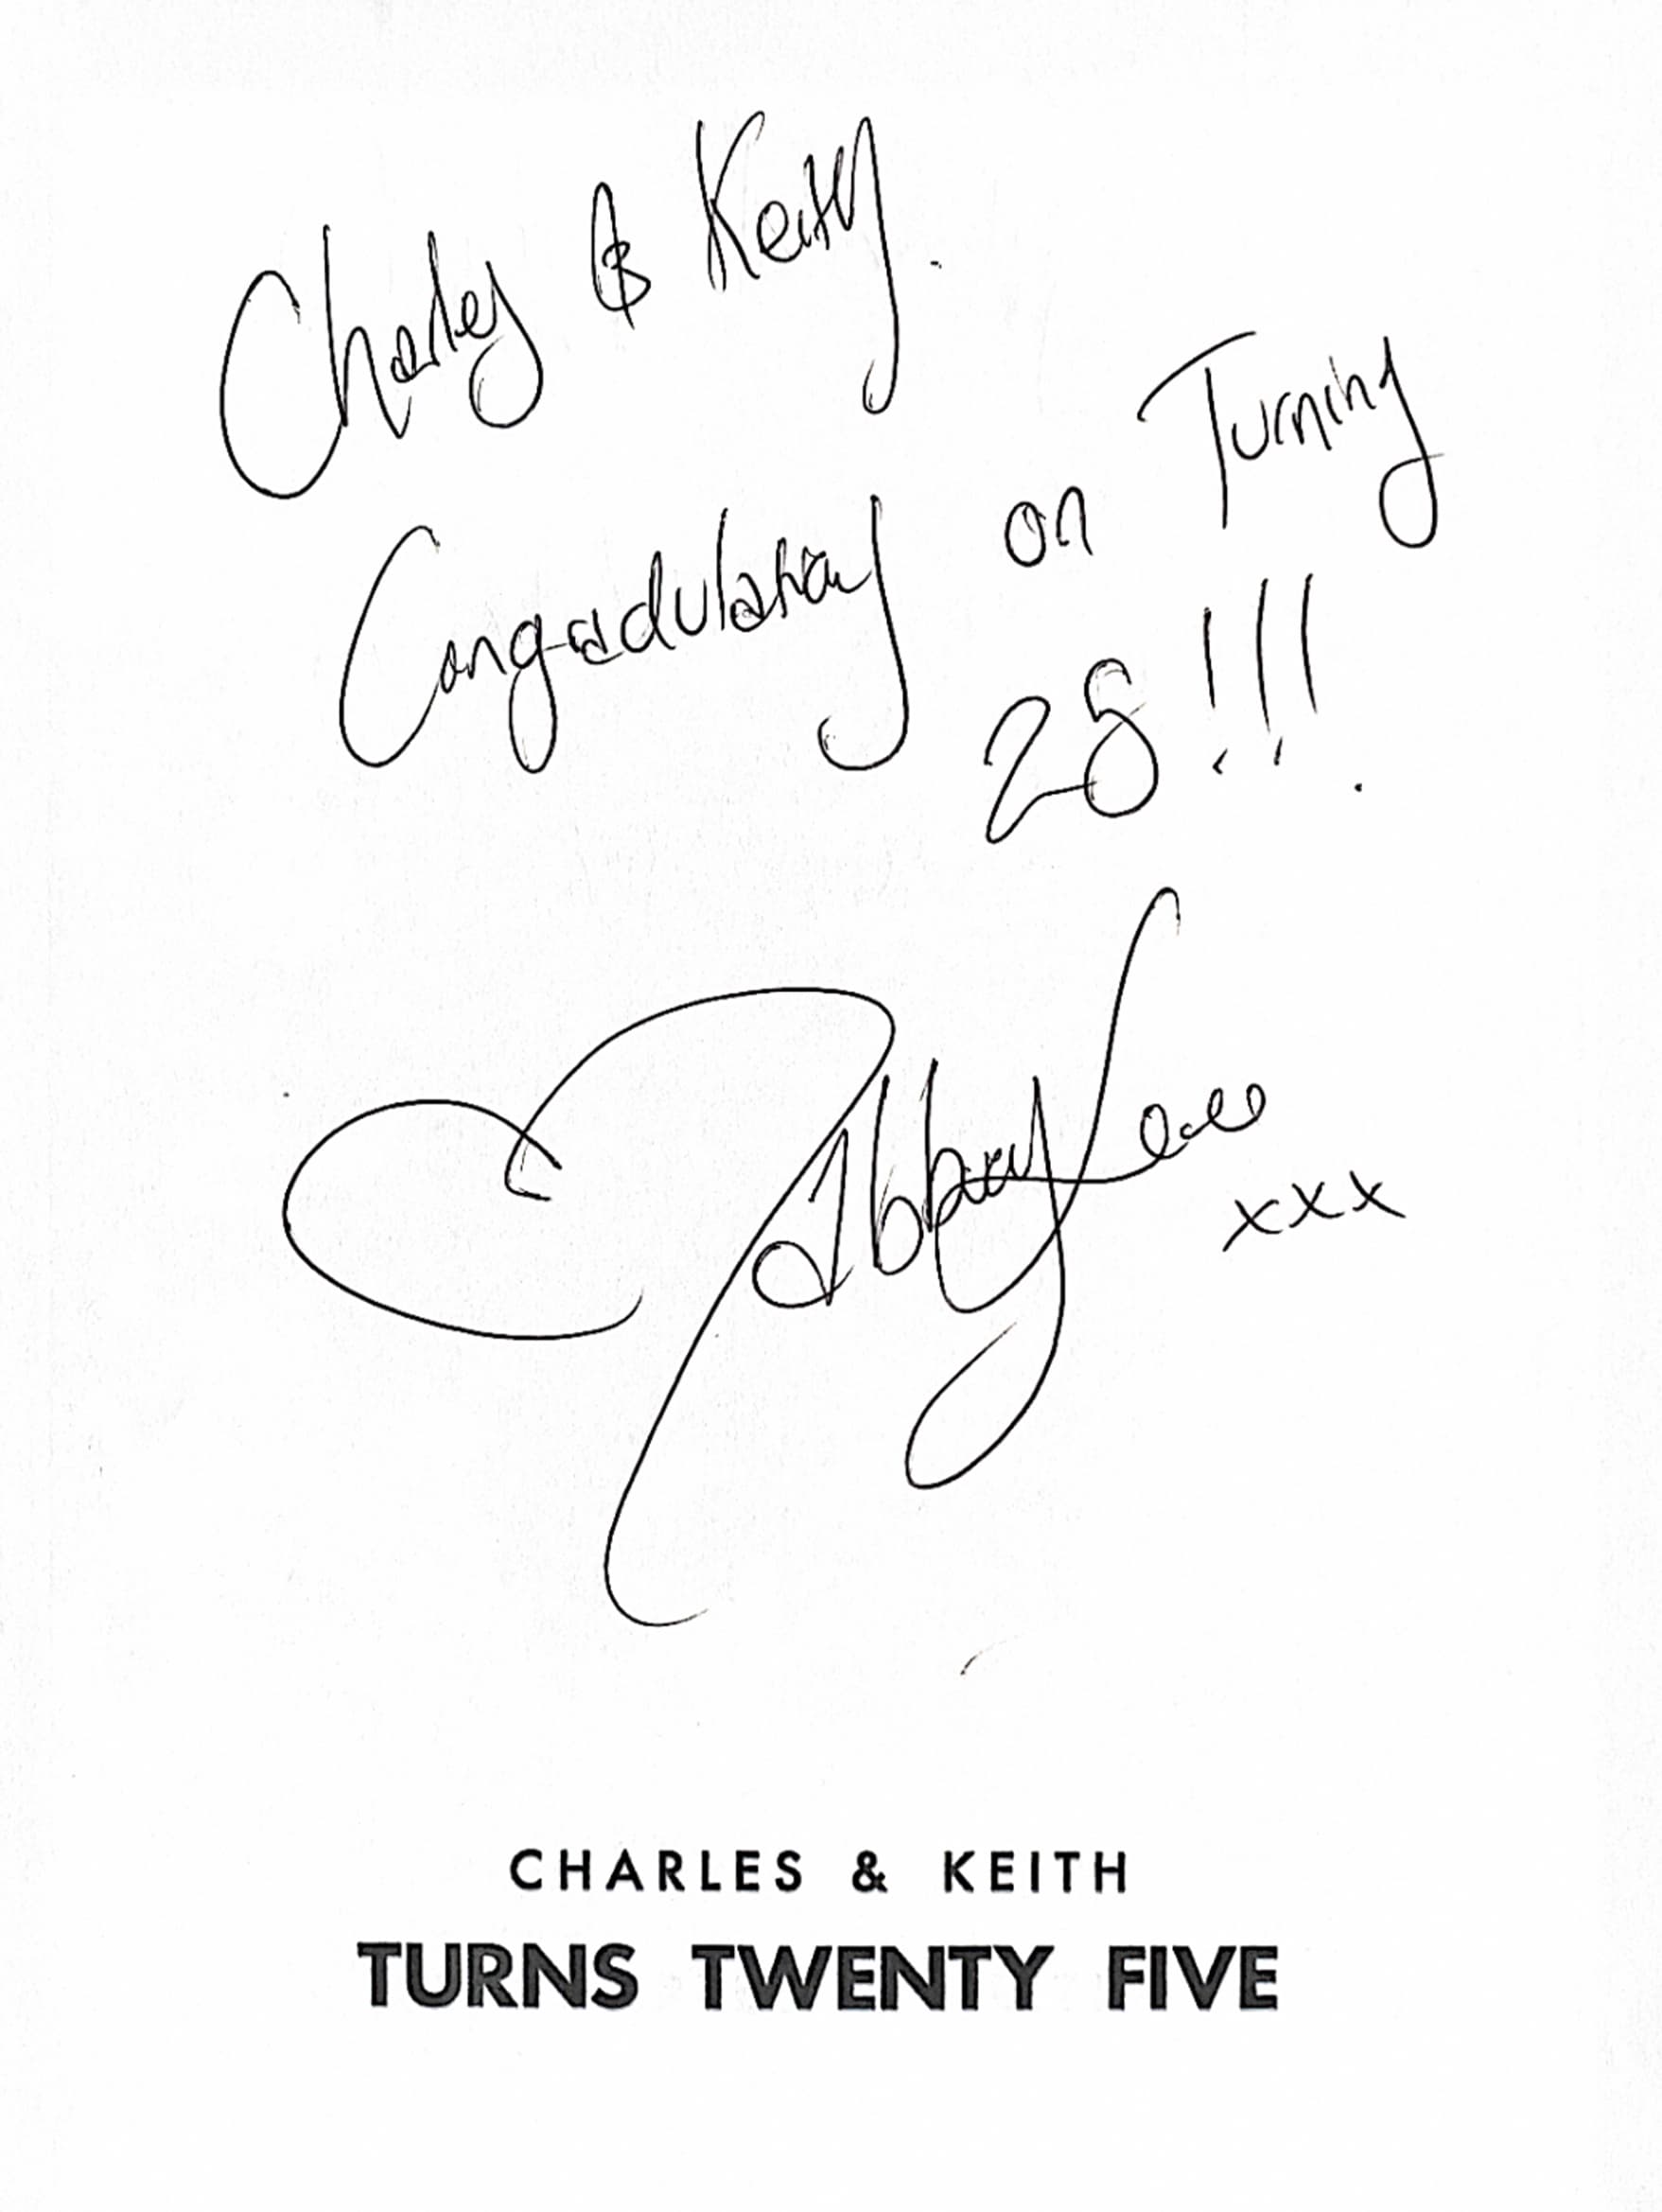 Charles & Keith.
Congradulations on Turning
25!!!
Abbey Lee
xxx
CHARLES & KEITH
TURNS TWENTY FIVE